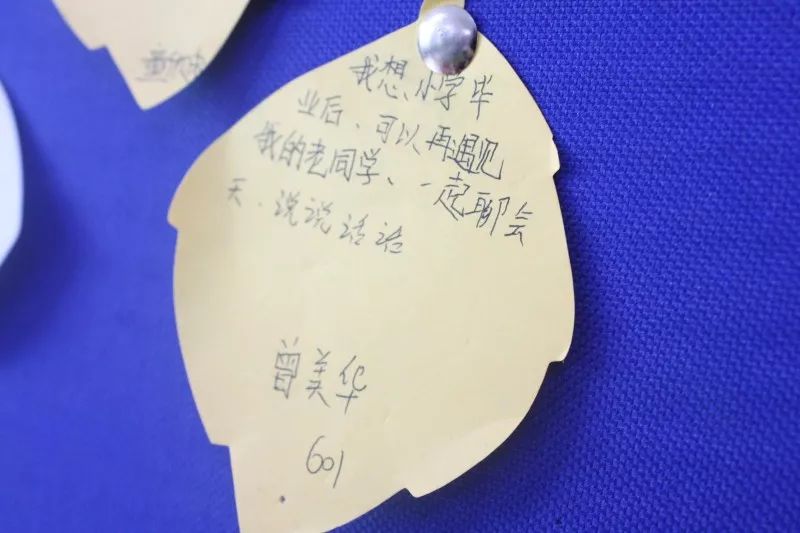 我想、小学毕
业后、可以再遇见
我的老同学、一起聊会
天、说说话话
曾美华
601